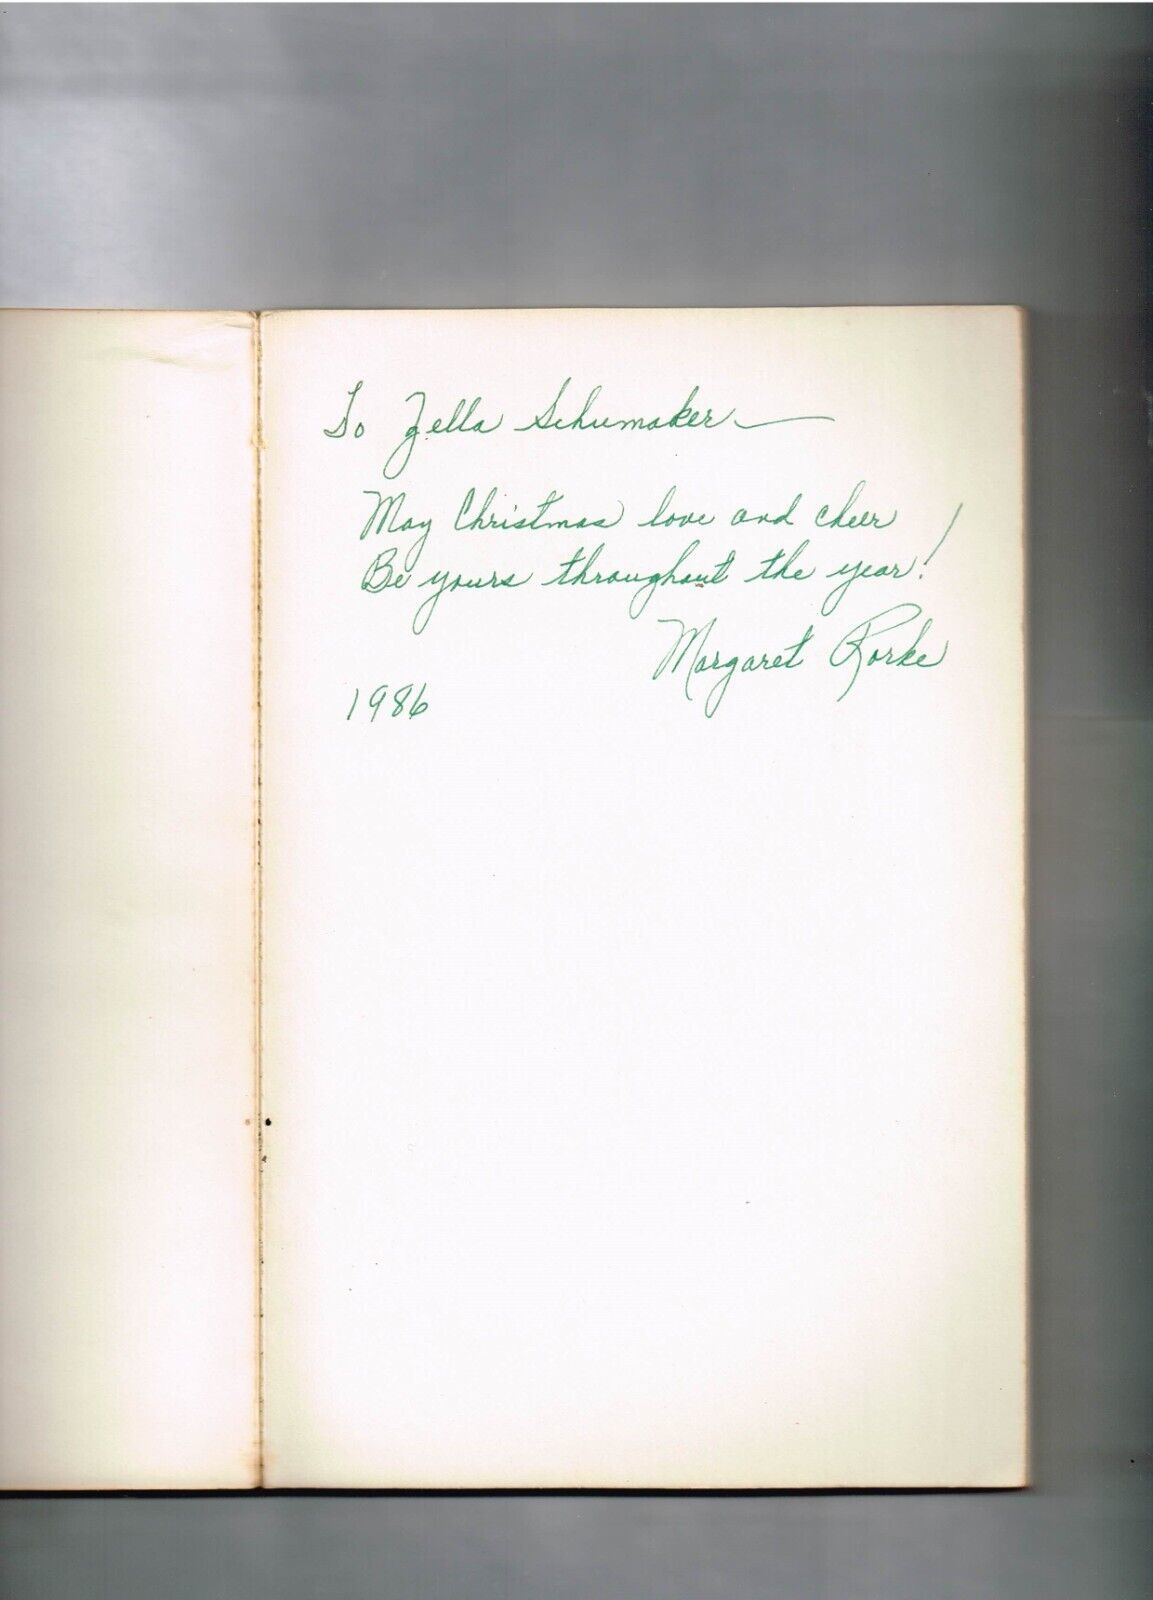 To Zella Schumaker—
May Christmas love and cheer
Be yours throughout the year!
Margaret Rorke
1986